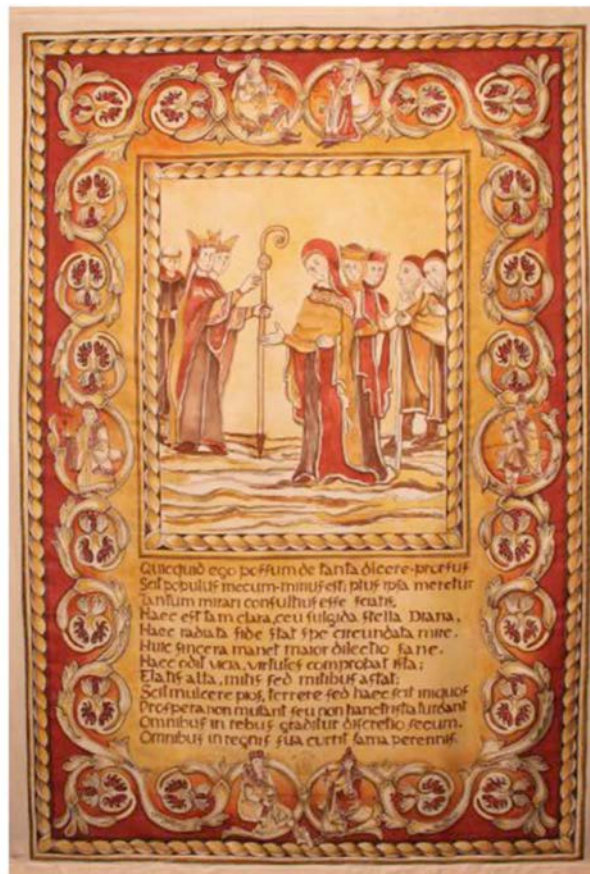 Quicquid ego possum de tanta dicere·prorsus
Scit populus mecum·minus est; plus ipsa meretur
Tantum mirari consultius esse sciatis,
Haec est tam clara, ceu fulgida stella Diana,
Haec radiata fide stat spe circundata mire.
Huic sincera manet maior dilectio sane.
Haec odit vicia, virtutes comprobat ista;
Elatis alta, mitis sed mitibus astat;
Scit mulcere pios, terrere sed haec scit iniquos
Prospera non mutant seu non tristia turbant
Omnibus in rebus graditur discretio secum.
Omnibus in regnis sua currit fama perennis.